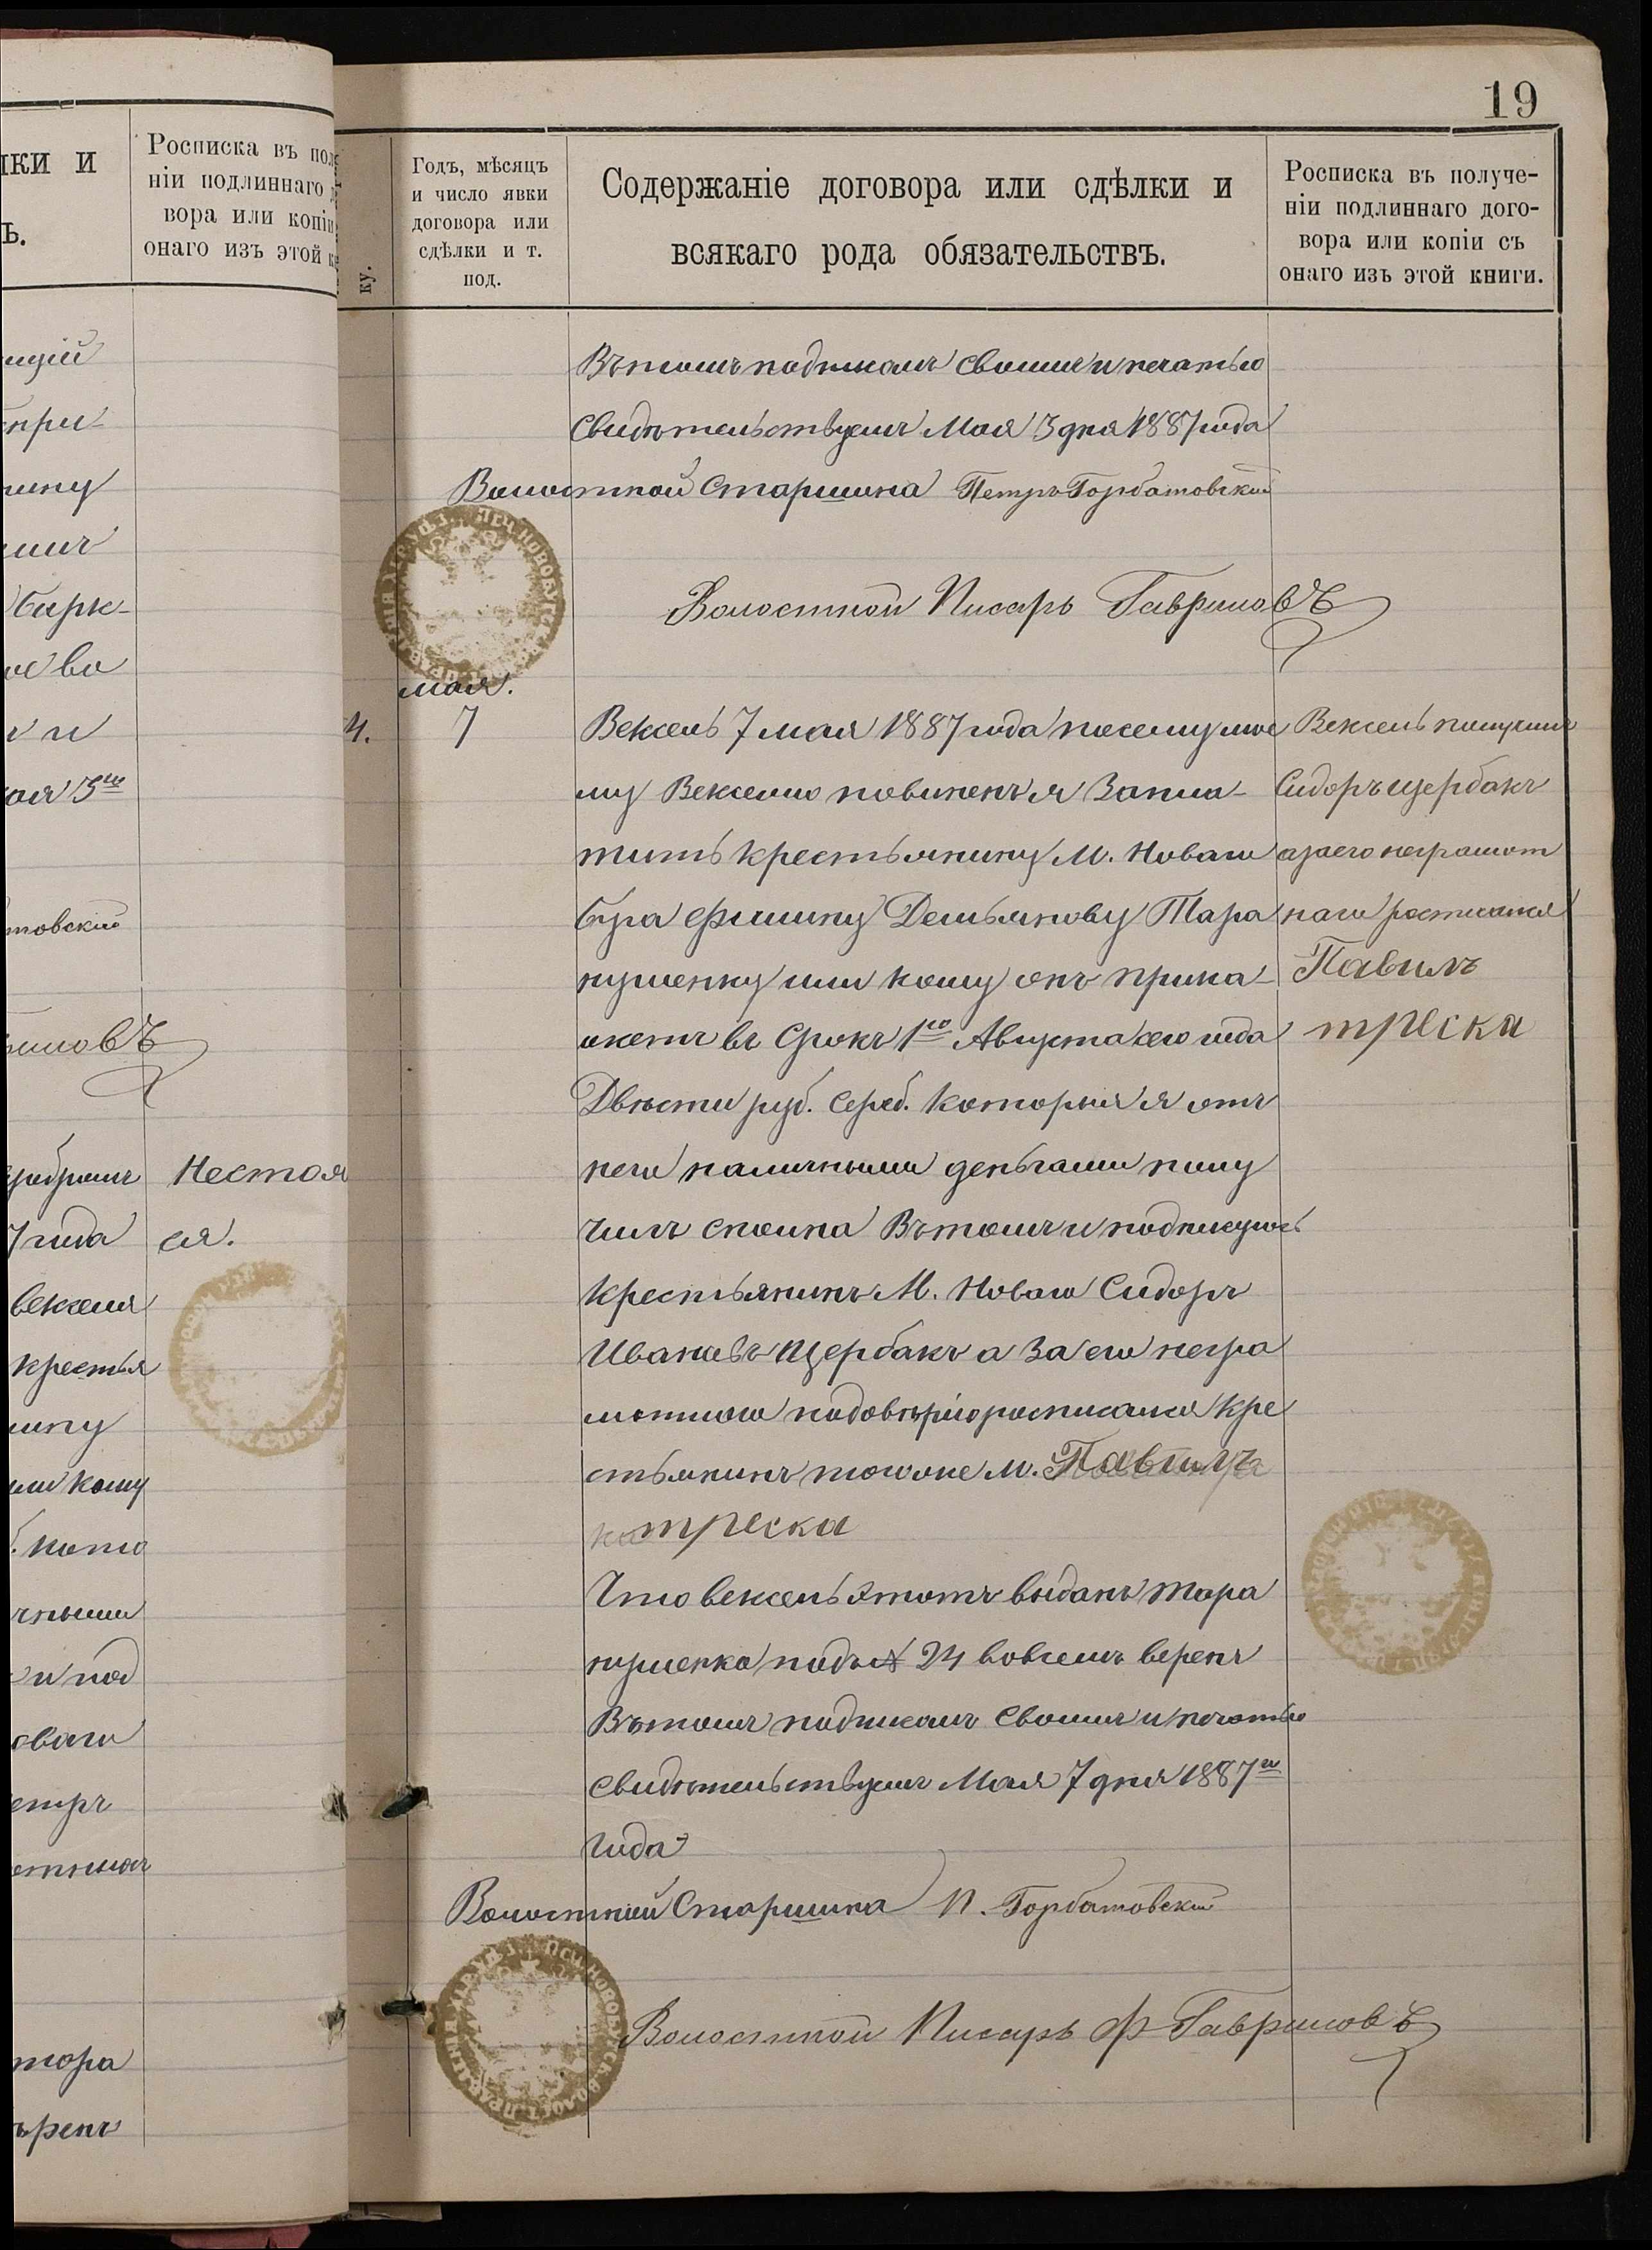 19
ки и
ъ.
Росписка въ пол
ніи подлиннаго
вора или копіи
онаго изъ этой
ку.
Годъ, мѣсяцъ
и число явки
договора или
сдѣлки и т.
под.
Содержаніе договора или сдѣлки и
всякаго рода обязательствъ.
Росписка въ получе-
ніи подлиннаго дого-
вора или копіи съ
онаго изъ этой книги.
товскій
Нестоя
ся.
7 года
векселя
крестья
или кому
Въ томъ подписомъ своимъ и печатью
Свидѣтельствуемъ Мая 3 дня 1887 года
Волостной Старшина Петръ Горбатовскій
Волостной Писарь Гавриловъ
мая.
4. 7
Вексель 7 мая 1887 года посему мое
му Векселю повиненъ я Запла-
тить крестьянину М. Новаго
Буга Филипу Демьянову Тара
нушенку или кому онъ прика-
жетъ въ Срокъ 1го Августа сего года
Двѣсти руб. Сереб. которыя я отъ
него наличными деньгами полу
чилъ сполна Въ томъ и подписуюсь
крестьянинъ М. Новаго Сидоръ
Ивановъ Щербакъ а За его негра
мотного подовѣрію росписался кре
стьянинъ тогоже м. Павилъ
треска
Что вексель этотъ выданъ Тара
нушенка подъ № 24 вовсемъ веренъ
Въ томъ подписомъ Своимъ и печатью
Свидѣтельствуемъ Мая 7 дня 1887го
года
Волостной Старшина П. Горбатовскій
Волостной Писарь Ф Гавриловъ
Вексель получилъ
Сидоръ щербакъ
азаего неграмот
наго росписался
Павилъ
треска